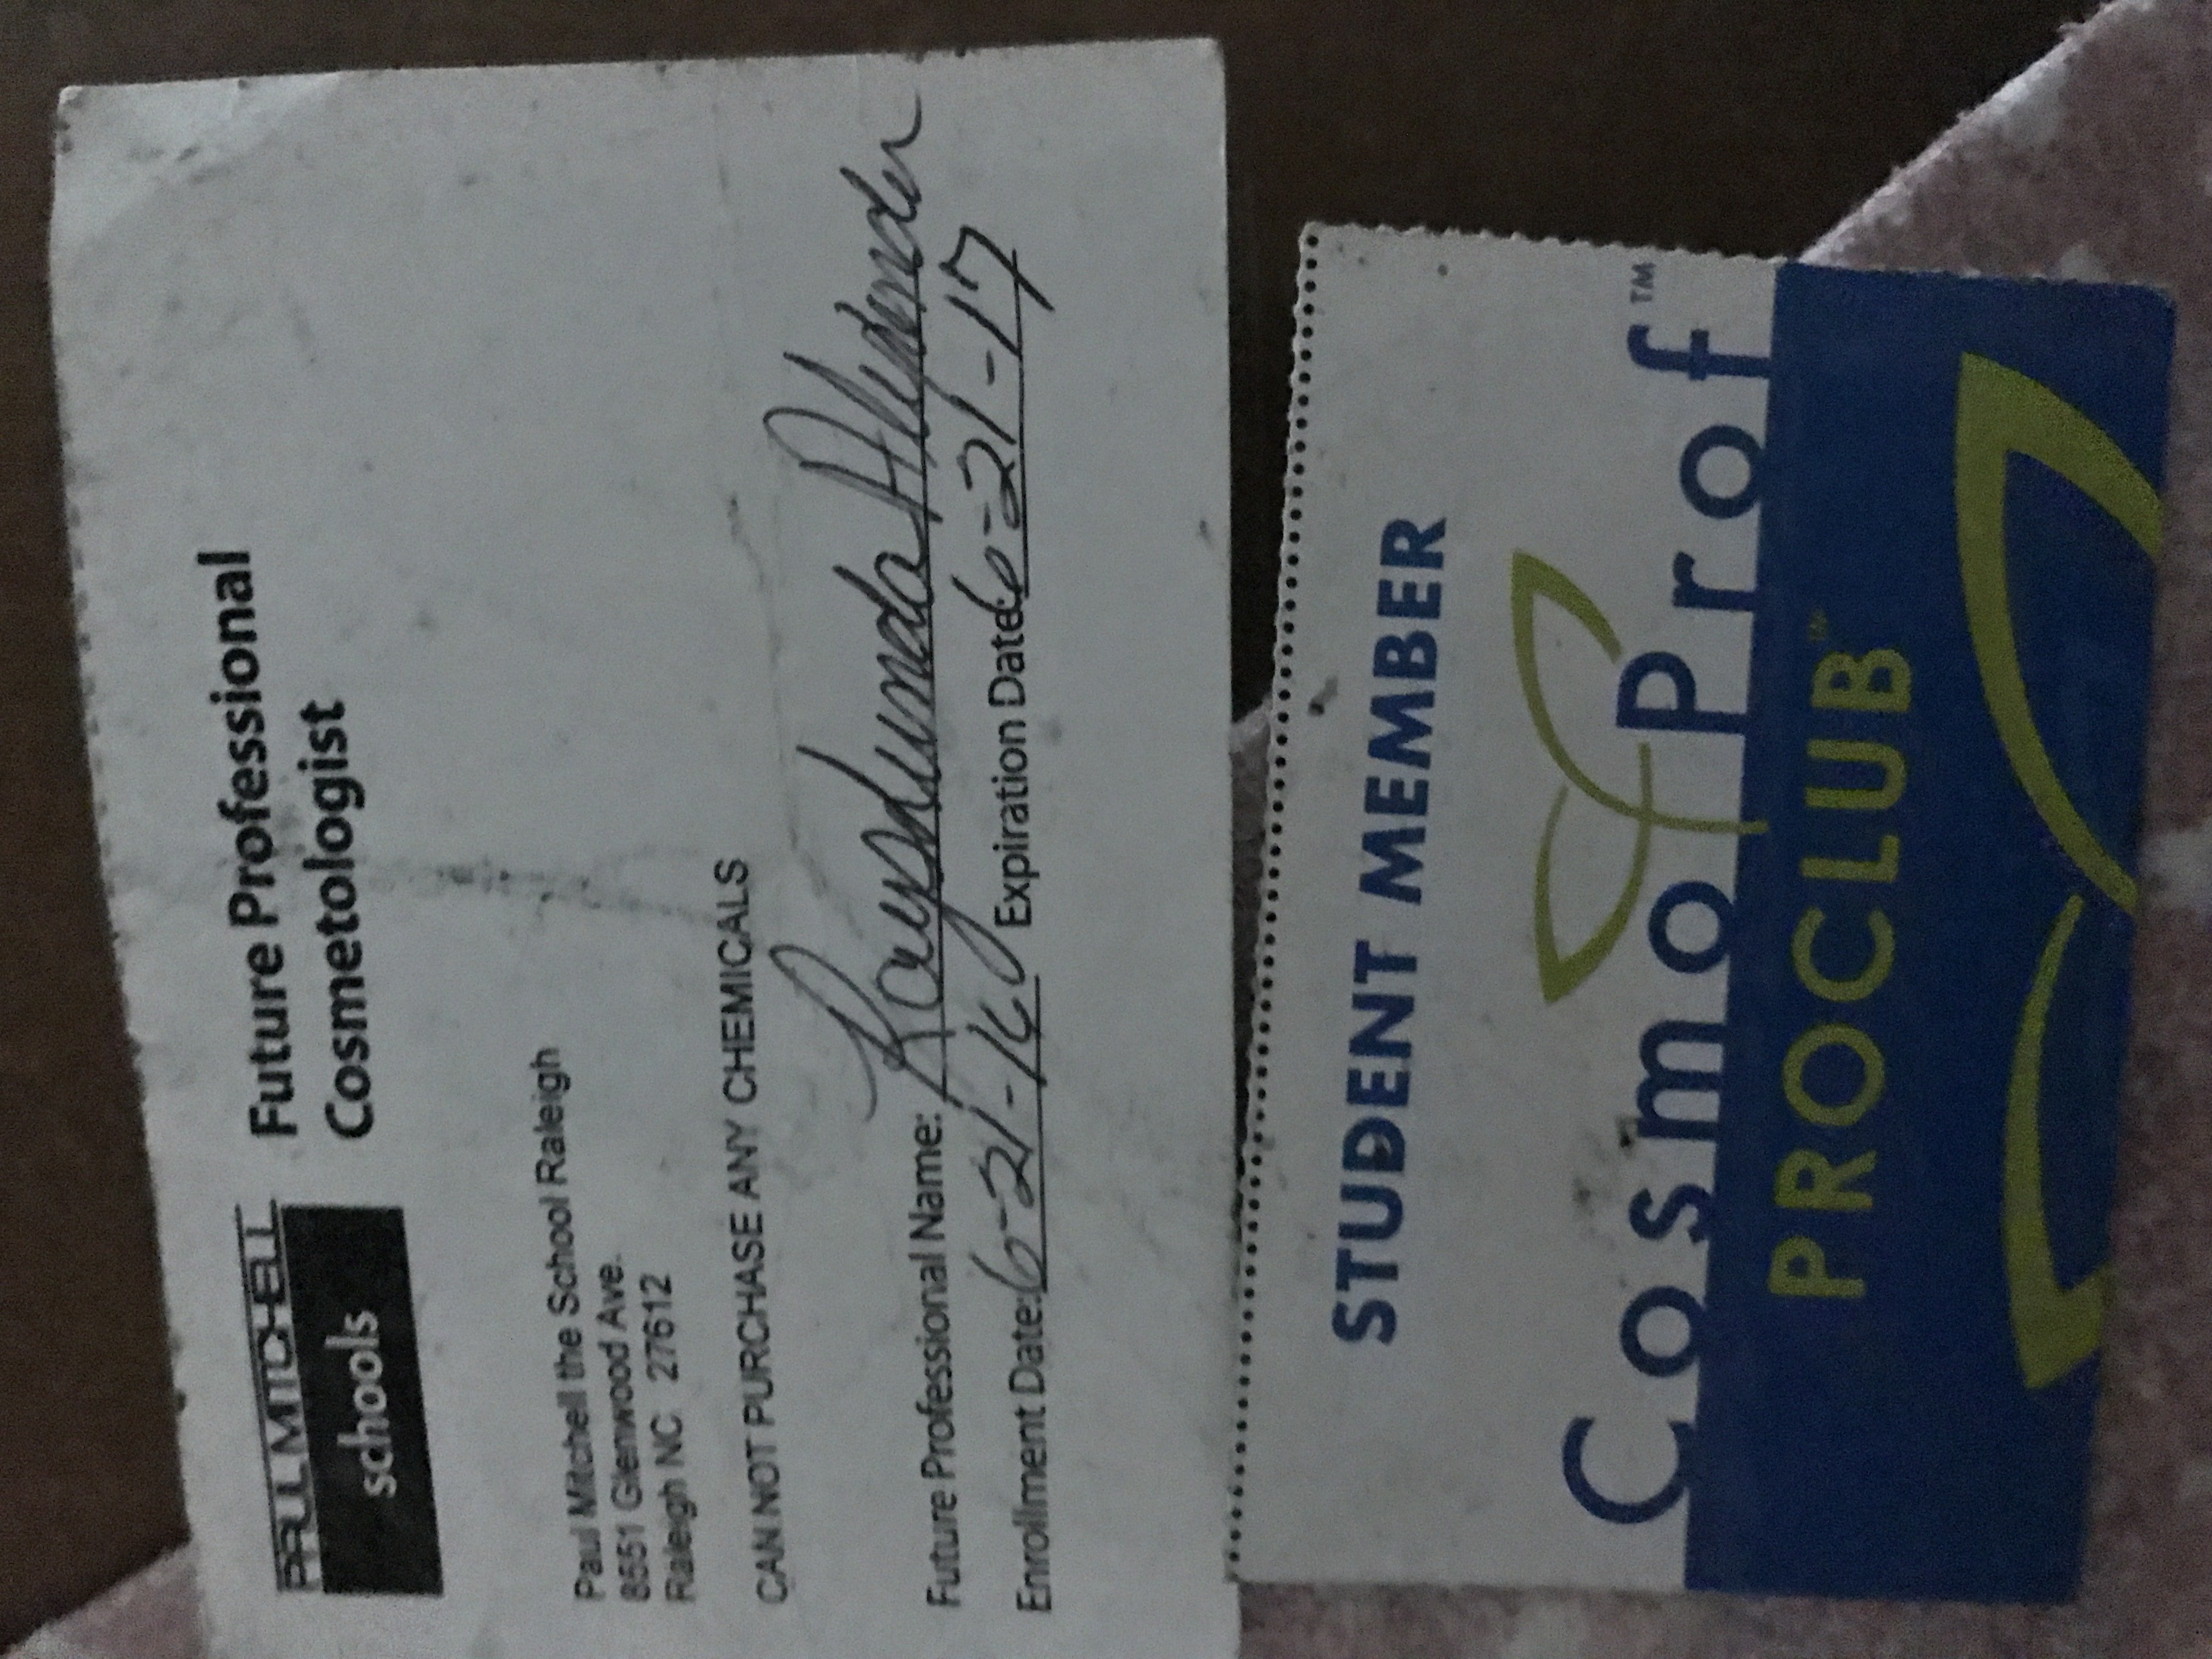 PAUL MITCHELL
schools
Future Professional
Cosmetologist
Paul Mitchell the School Raleigh
8551 Glenwood Ave.
Raleigh NC 27612
CAN NOT PURCHASE ANY CHEMICALS
Future Professional Name: Alexander
Enrollment Date: 6-21-16 Expiration Date: 6-21-17
STUDENT MEMBER
CosmoProf™
PROCLUB℠